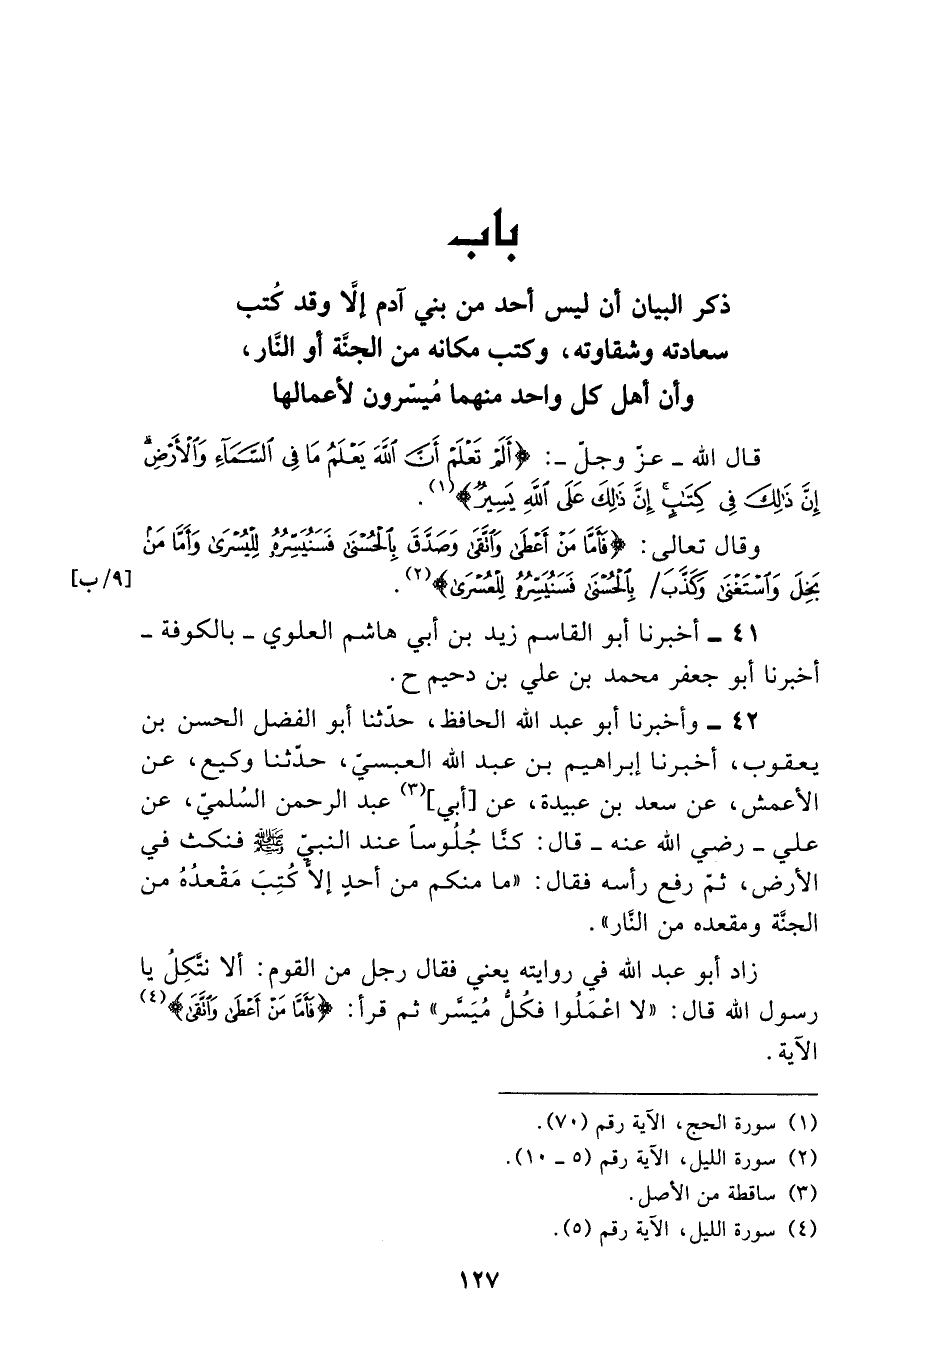 باب
ذكر البيان أن ليس أحد من بني آدم إلَّا وقد كُتب
سعادته وشقاوته، وكتب مكانه من الجنَّة أو النَّار،
وأن أهل كل واحد منهما مُيسّرون لأعمالها
قال الله ـ عزّ وجلّ ـ: ﴿أَلَمْ تَعْلَمْ أَنَّ ٱللَّهَ يَعْلَمُ مَا فِى ٱلسَّمَآءِ وَٱلْأَرْضِۗ
إِنَّ ذَٰلِكَ فِى كِتَٰبٍۚ إِنَّ ذَٰلِكَ عَلَى ٱللَّهِ يَسِيرٌ﴾(١).
وقال تعالى: ﴿فَأَمَّا مَنْ أَعْطَىٰ وَٱتَّقَىٰ وَصَدَّقَ بِٱلْحُسْنَىٰ فَسَنُيَسِّرُهُۥ لِلْيُسْرَىٰ وَأَمَّا مَنۢ
بَخِلَ وَٱسْتَغْنَىٰ وَكَذَّبَ/ بِٱلْحُسْنَىٰ فَسَنُيَسِّرُهُۥ لِلْعُسْرَىٰ﴾(٢). [٩/ب]
٤١ ـ أخبرنا أبو القاسم زيد بن أبي هاشم العلوي ـ بالكوفة ـ
أخبرنا أبو جعفر محمد بن علي بن دحيم ح.
٤٢ ـ وأخبرنا أبو عبد الله الحافظ، حدّثنا أبو الفضل الحسن بن
يعقوب، أخبرنا إبراهيم بن عبد الله العبسيّ، حدّثنا وكيع، عن
الأعمش، عن سعد بن عبيدة، عن [أبي](٣) عبد الرحمن السُلميّ، عن
علي ـ رضي الله عنه ـ قال: كنَّا جُلُوساً عند النبيّ ﷺ فنكث في
الأرض، ثمّ رفع رأسه فقال: «ما منكم من أحدٍ إلاَّ كُتِبَ مَقْعدُهُ من
الجنَّة ومقعده من النَّار».
زاد أبو عبد الله في روايته يعني فقال رجل من القوم: ألا نتَّكِلُ يا
رسول الله قال: «لا اعْمَلُوا فكُلُّ مُيَسَّر» ثم قرأ: ﴿فَأَمَّا مَنْ أَعْطَىٰ وَٱتَّقَىٰ﴾(٤)
الآية.
(١) سورة الحج، الآية رقم (٧٠).
(٢) سورة الليل، الآية رقم (٥ ـ ١٠).
(٣) ساقطة من الأصل.
(٤) سورة الليل، الآية رقم (٥).
١٢٧